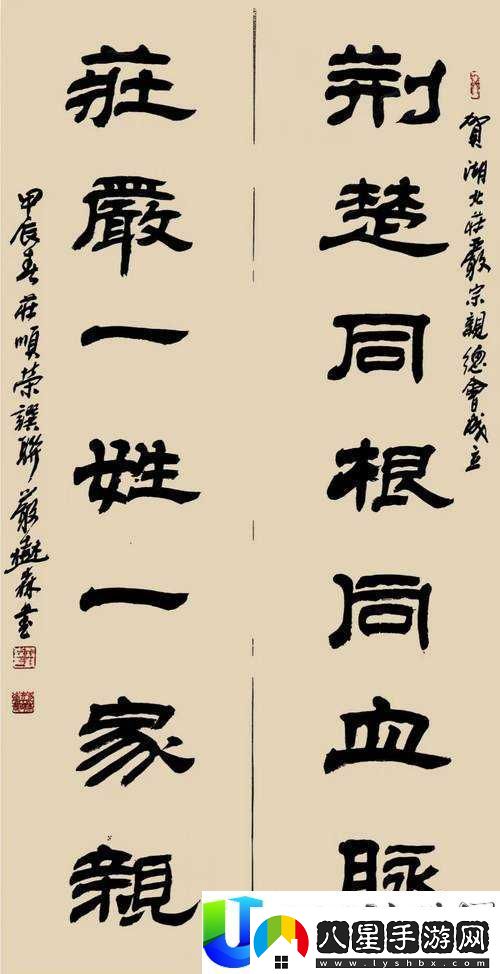 賀湖北莊嚴宗親總會成立
荆楚同根同血脈
莊嚴一姓一家親
甲辰春莊順榮譔聯 嚴森書
八星手游网
www.lyshbx.com